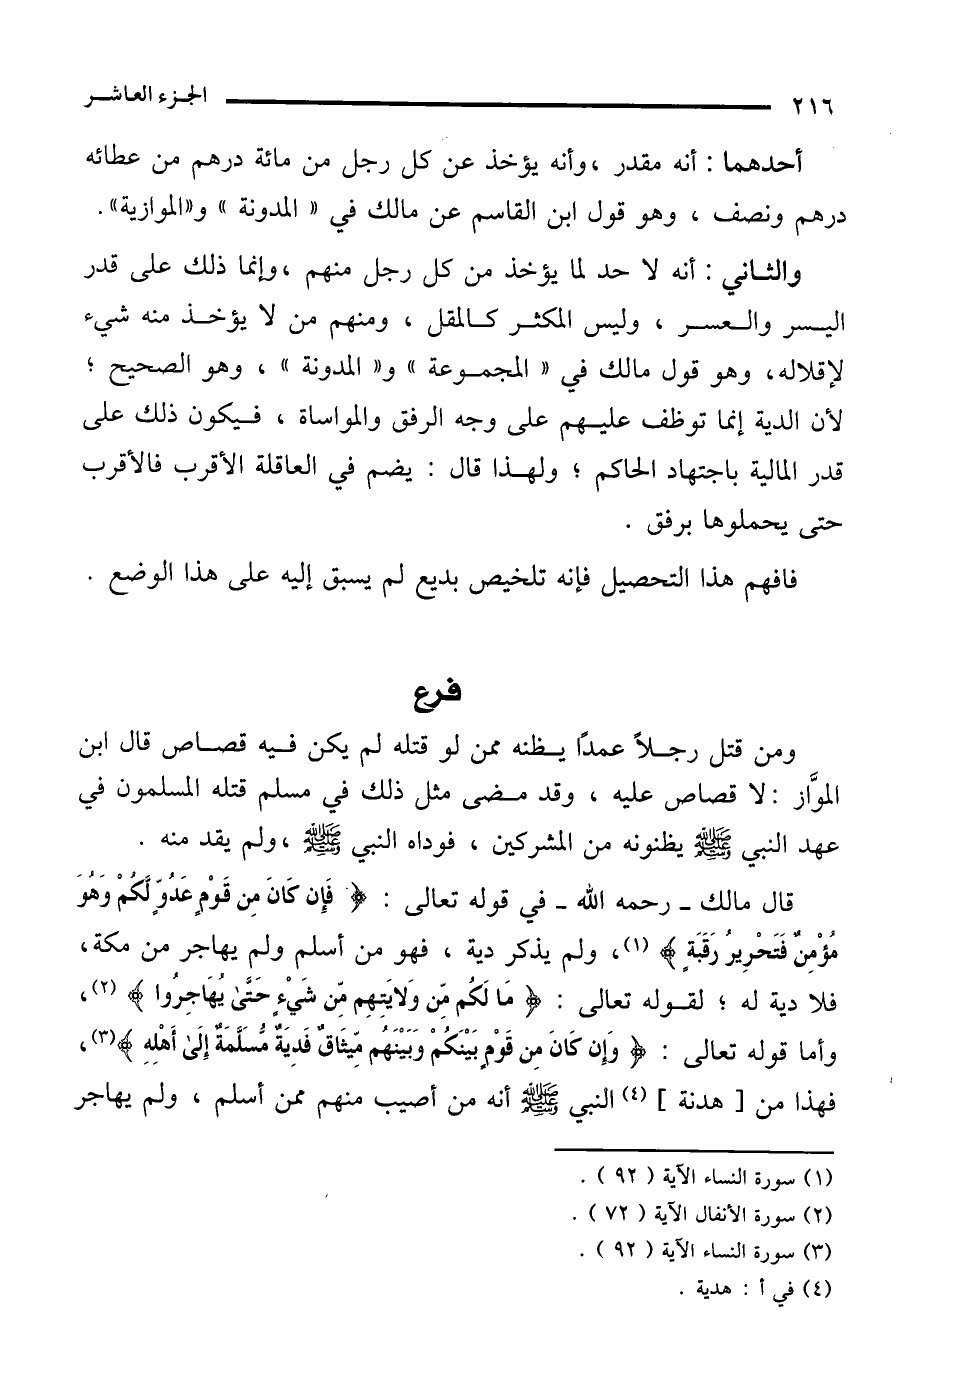 ٢١٦ الجزء العاشر
أحدهما : أنه مقدر ، وأنه يؤخذ عن كل رجل من مائة درهم من عطائه
درهم ونصف ، وهو قول ابن القاسم عن مالك في « المدونة » و«الموازية».
والثاني : أنه لا حد لما يؤخذ من كل رجل منهم ، وإنما ذلك على قدر
اليسر والعسر ، وليس المكثر كالمقل ، ومنهم من لا يؤخذ منه شيء
لإقلاله، وهو قول مالك في « المجموعة » و« المدونة » ، وهو الصحيح ؛
لأن الدية إنما توظف عليهم على وجه الرفق والمواساة ، فيكون ذلك على
قدر المالية باجتهاد الحاكم ؛ ولهذا قال : يضم في العاقلة الأقرب فالأقرب
حتى يحملوها برفق .
فافهم هذا التحصيل فإنه تلخيص بديع لم يسبق إليه على هذا الوضع .
فرع
ومن قتل رجلاً عمدًا يظنه ممن لو قتله لم يكن فيه قصاص قال ابن
الموَّاز : لا قصاص عليه ، وقد مضى مثل ذلك في مسلم قتله المسلمون في
عهد النبي ﷺ يظنونه من المشركين ، فوداه النبي ﷺ ، ولم يقد منه .
قال مالك ـ رحمه الله ـ في قوله تعالى : ﴿ فَإِن كَانَ مِن قَوْمٍ عَدُوٍّ لَّكُمْ وَهُوَ
مُؤْمِنٌ فَتَحْرِيرُ رَقَبَةٍ ﴾ (١)، ولم يذكر دية ، فهو من أسلم ولم يهاجر من مكة،
فلا دية له ؛ لقوله تعالى : ﴿ مَا لَكُم مِّن وَلايَتِهِم مِّن شَيْءٍ حَتَّىٰ يُهَاجِرُوا ﴾ (٢)،
وأما قوله تعالى : ﴿ وَإِن كَانَ مِن قَوْمٍ بَيْنَكُمْ وَبَيْنَهُم مِّيثَاقٌ فَدِيَةٌ مُّسَلَّمَةٌ إِلَىٰ أَهْلِهِ ﴾(٣)،
فهذا من [ هدنة ] (٤) النبي ﷺ أنه من أصيب منهم ممن أسلم ، ولم يهاجر
(١) سورة النساء الآية ( ٩٢ ) .
(٢) سورة الأنفال الآية ( ٧٢ ) .
(٣) سورة النساء الآية ( ٩٢ ) .
(٤) في أ : هدية .